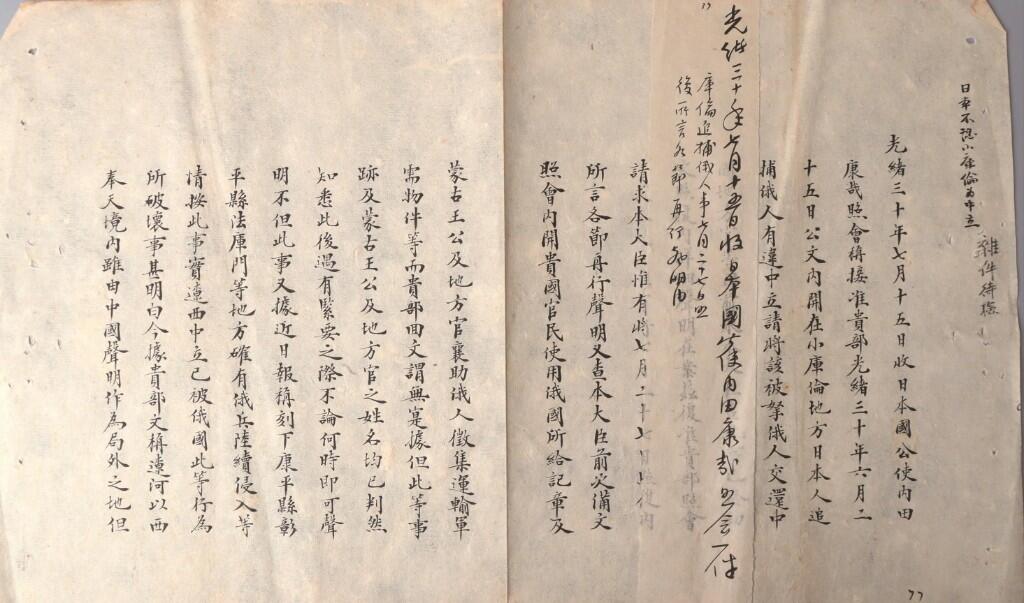 日本不認小庫倫為中立
雜件待總
光緒三十年七月十五日收日本國公使內田
康哉照會稱接准貴部光緒三十年六月二
十五日公文內開在小庫倫地方日本人追
捕俄人有違中立請將該被拏俄人交還中
光緒三十年七月十五日收日本國公使內田康哉照會一件
庫倫追捕俄人事七月二十七日照
後所言各節再行聲明由
請求本大臣惟有將七月二十七日照復內
所言各節再行聲明又查本大臣前次備文
照會內開貴國官民使用俄國所給記章及
蒙古王公及地方官襄助俄人徵集運輸軍
需物件等而貴部回文謂無寔據但此等事
跡及蒙古王公及地方官之姓名均已判然
知悉此後遇有緊要之際不論何時即可聲
明不但此事又據近日報稱刻下康平縣彰
平縣法庫門等地方確有俄兵陸續侵入等
情按此事實遼西中立已被俄國此等行為
所破壞事甚明白今據貴部文稱遼河以西
奉天境內雖由中國聲明作為局外之地但
77